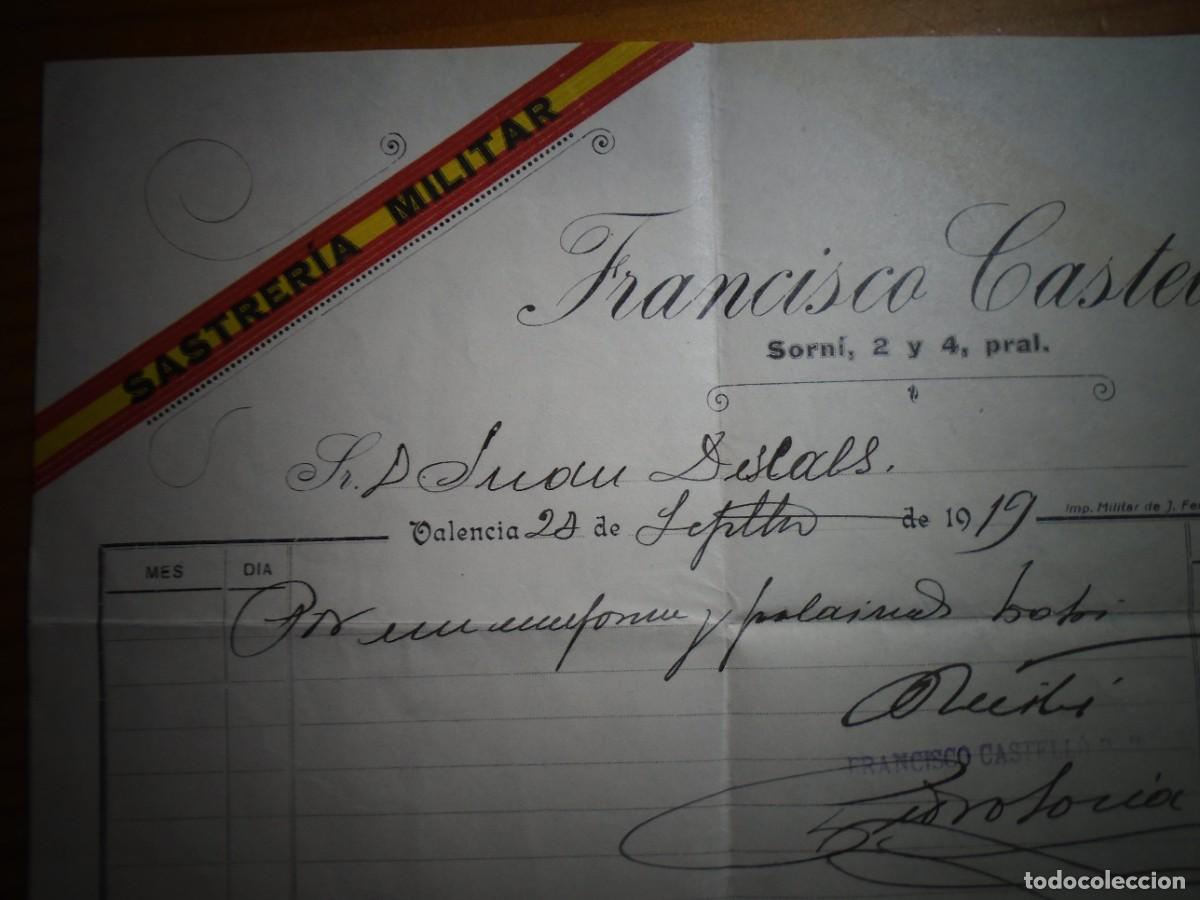 SASTRERÍA MILITAR
Francisco Castel
Sorní, 2 y 4, pral.
Sr. D Juan Descals.
Valencia 24 de Septbre de 1919
Imp. Militar de J. Fe
MES DIA
Por un uneforme y polainas
Recibí
FRANCISCO CASTELLÓ
Soria
todocoleccion